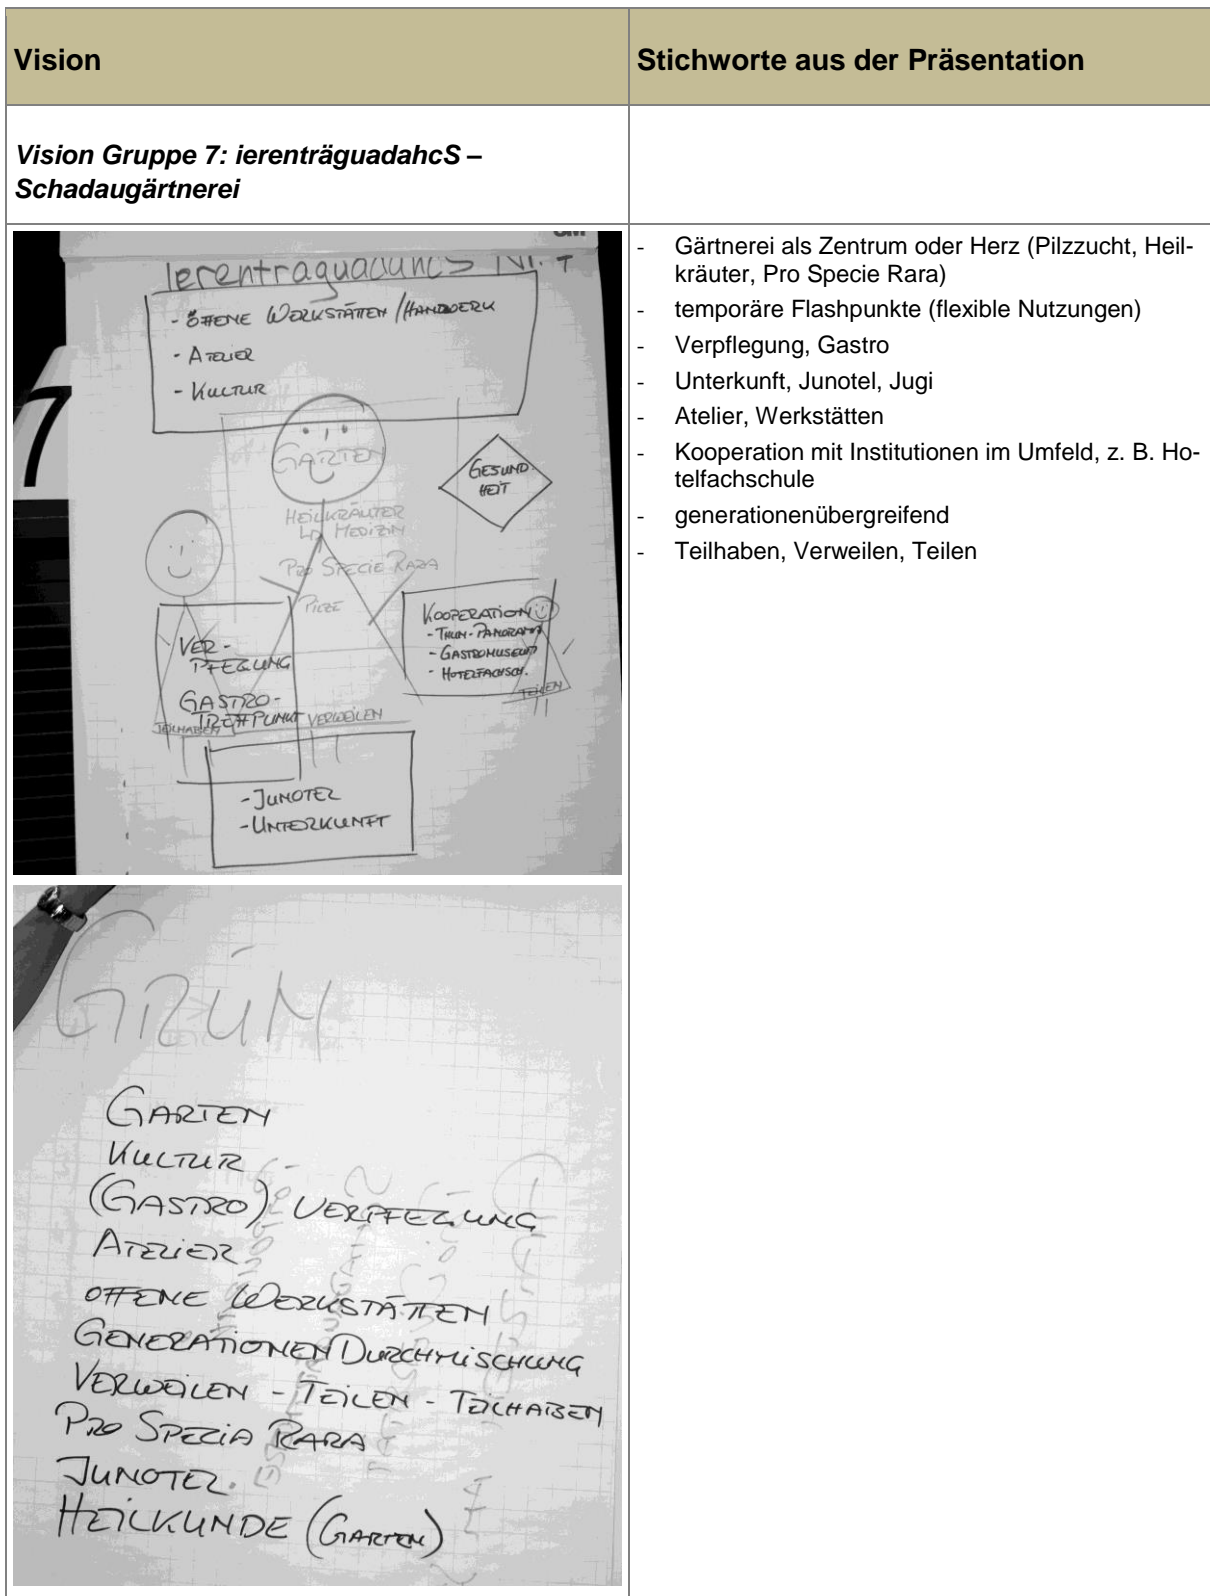 Vision
Stichworte aus der Präsentation
Vision Gruppe 7: ierenträguadahcS –
Schadaugärtnerei
7
- OFFENE WERKSTÄTTEN / HANDWERK
- ATELIER
- KULTUR
GARTEN
GESUND-
HEIT
HEILKRÄUTER
MEDIZIN
PRO SPECIE RARA
PILZE
VER-
PFLEGUNG
GASTRO-
TREFFPUNKT
TEILHABEN
VERWEILEN
KOOPERATION
- THUN-PANORAMA
- GASTROMUSEUM
- HOTELFACHSCH.
TEILEN
- JUNOTEL
- UNTERKUNFT
GRÜN
GARTEN
KULTUR
(GASTRO) VERPFLEGUNG
ATELIER
OFFENE WERKSTÄTTEN
GENERATIONEN DURCHMISCHUNG
VERWEILEN - TEILEN - TEILHABEN
PRO SPEZIA RARA
JUNOTEL.
HEILKUNDE (GARTEN)
- Gärtnerei als Zentrum oder Herz (Pilzzucht, Heil-
kräuter, Pro Specie Rara)
- temporäre Flashpunkte (flexible Nutzungen)
- Verpflegung, Gastro
- Unterkunft, Junotel, Jugi
- Atelier, Werkstätten
- Kooperation mit Institutionen im Umfeld, z. B. Ho-
telfachschule
- generationenübergreifend
- Teilhaben, Verweilen, Teilen